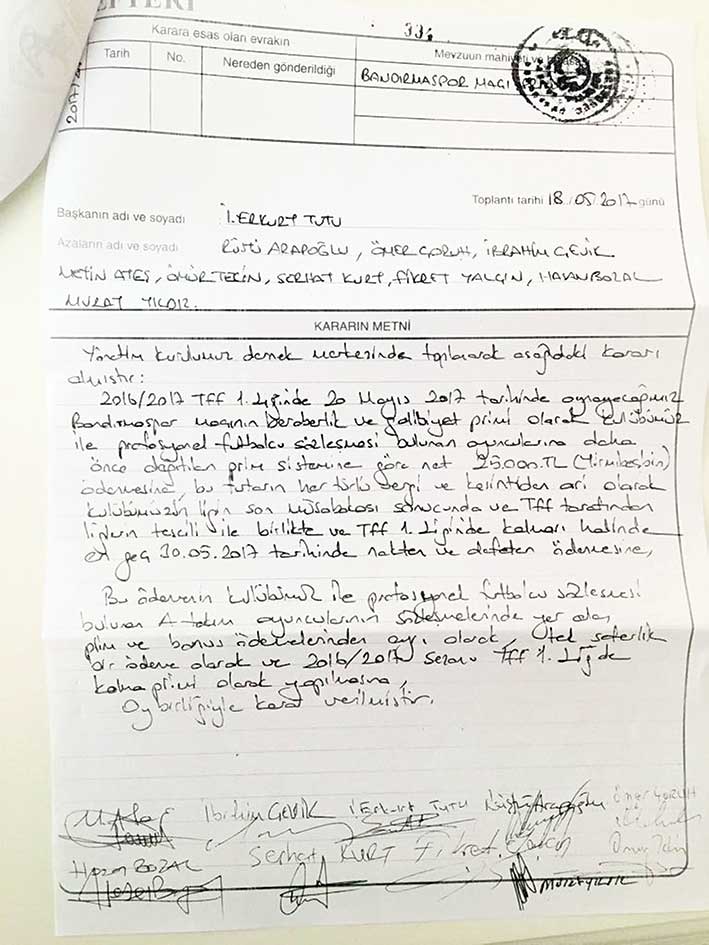 EFTERİ
Karara esas olan evrakın
334
Mevzuun mahiyeti ve
Tarih No. Nereden gönderildiği
BANDIRMASPOR MAÇI
2017/
Toplantı tarihi 18.05.2017 günü
Başkanın adı ve soyadı İ.ERKURT TUTU
Azaların adı ve soyadı RÜŞTÜ ARAPOĞLU, ÖMER ÇORUH, İBRAHİM ÇEVİK
METİN ATEŞ, ÖMÜR TEKİN, SERHAT KURT, FİKRET YALÇIN, HAKAN BOZAL
MURAT YILDIZ.
KARARIN METNİ
Yönetim kurulumuz dernek merkezinde toplanarak aşağıdaki kararı
almıştır:
2016/2017 TFF 1. Liginde 20 Mayıs 2017 tarihinde oynayacağımız
Bandırmaspor maçının beraberlik ve galibiyet primi olarak kulübümüz
ile profesyonel futbolcu sözleşmesi bulunan oyuncularına daha
önce dağıtılan prim sistemine göre net 25.000.TL (Yirmibeşbin)
ödemesine, bu tutarın her türlü vergi ve kesintiden ari olarak
kulübümüzün ligin son müsabakası sonucunda ve TFF tarafından
liglerin tescili ile birlikte ve TFF 1. Liginde kalması halinde
en geç 30.05.2017 tarihinde nakten ve defaten ödemesine,
Bu ödemenin kulübümüz ile profesyonel futbolcu sözleşmesi
bulunan A takım oyuncularının sözleşmelerinde yer alan
prim ve bonus ödemelerinden ayrı olarak, tek seferlik
bir ödeme olarak ve 2016/2017 sezonu TFF 1. Ligde
kalma primi olarak yapılmasına,
Oy birliğiyle karar verilmiştir.
M. Ateş İbrahim ÇEVİK İ.Erkurt TUTU Rüştü Arapoğlu Ömer ÇORUH
BOZAL Serhat KURT Fikret Yalçın Ömür Tekin
MURAT YILDIZ